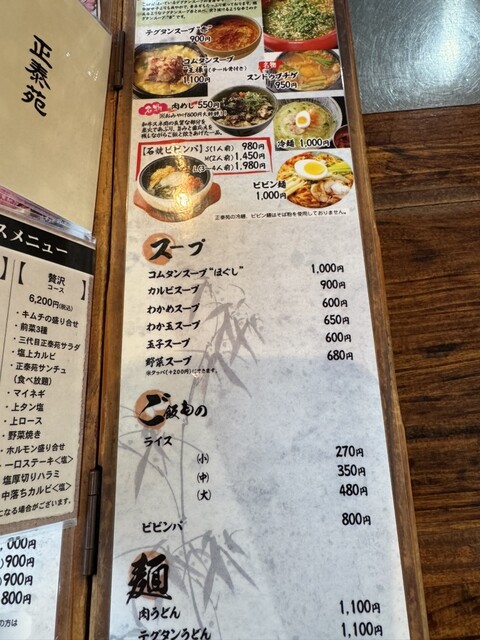 正泰苑
スメニュー
贅沢
コース
6,200円(税込)
・キムチの盛り合せ
・前菜3種
・三代目正泰苑サラダ
・塩上カルビ
・正泰苑サンチュ
(食べ放題)
・マイネギ
・上タン塩
・上ロース
・野菜焼き
・ホルモン盛り合せ
・一口ステーキ<塩>
・塩厚切りハラミ
・中落ちカルビ<塩>
になる場合がございます。
,000円
)900円
)900円
800円
の方は
テグタンスープ"赤"
900円
コムタンスープ
(テール骨付き)
1,100円
スンドゥブチゲ
950円
肉めし 550円
※おみやげ600円
冷麺 1,000円
【石焼ビビンバ】 S(1人前) 980円
M(2人前) 1,450円
L(3~4人前) 1,980円
ビビン麺
1,000円
正泰苑の冷麺、ビビン麺はそば粉を使用しておりません。
スープ
コムタンスープ"ほぐし" 1,000円
カルビスープ 900円
わかめスープ 600円
わか玉スープ 650円
玉子スープ 600円
野菜スープ 680円
※クッパ(+200円)にできます。
ご飯もの
ライス
(小) 270円
(中) 350円
(大) 480円
ビビンバ 800円
麺
肉うどん 1,100円
テグタンうどん 1,100円